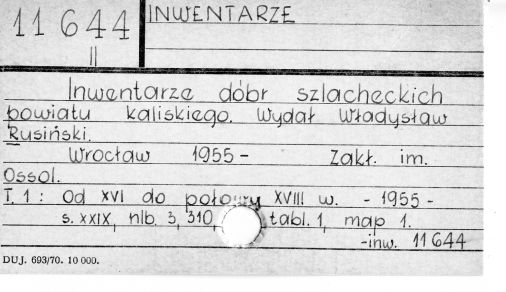 11 644
II
INWENTARZE
Inwentarze dóbr szlacheckich
powiatu kaliskiego. Wydał Władysław
Rusiński.
Wrocław 1955 - Zakł. im.
Ossol.
T. 1 : Od XVI do połowy XVIII w. - 1955 -
s. XXIX, nlb. 3, 310, tabl. 1, map 1.
-inw. 11644
DUJ. 693/70. 10 000.